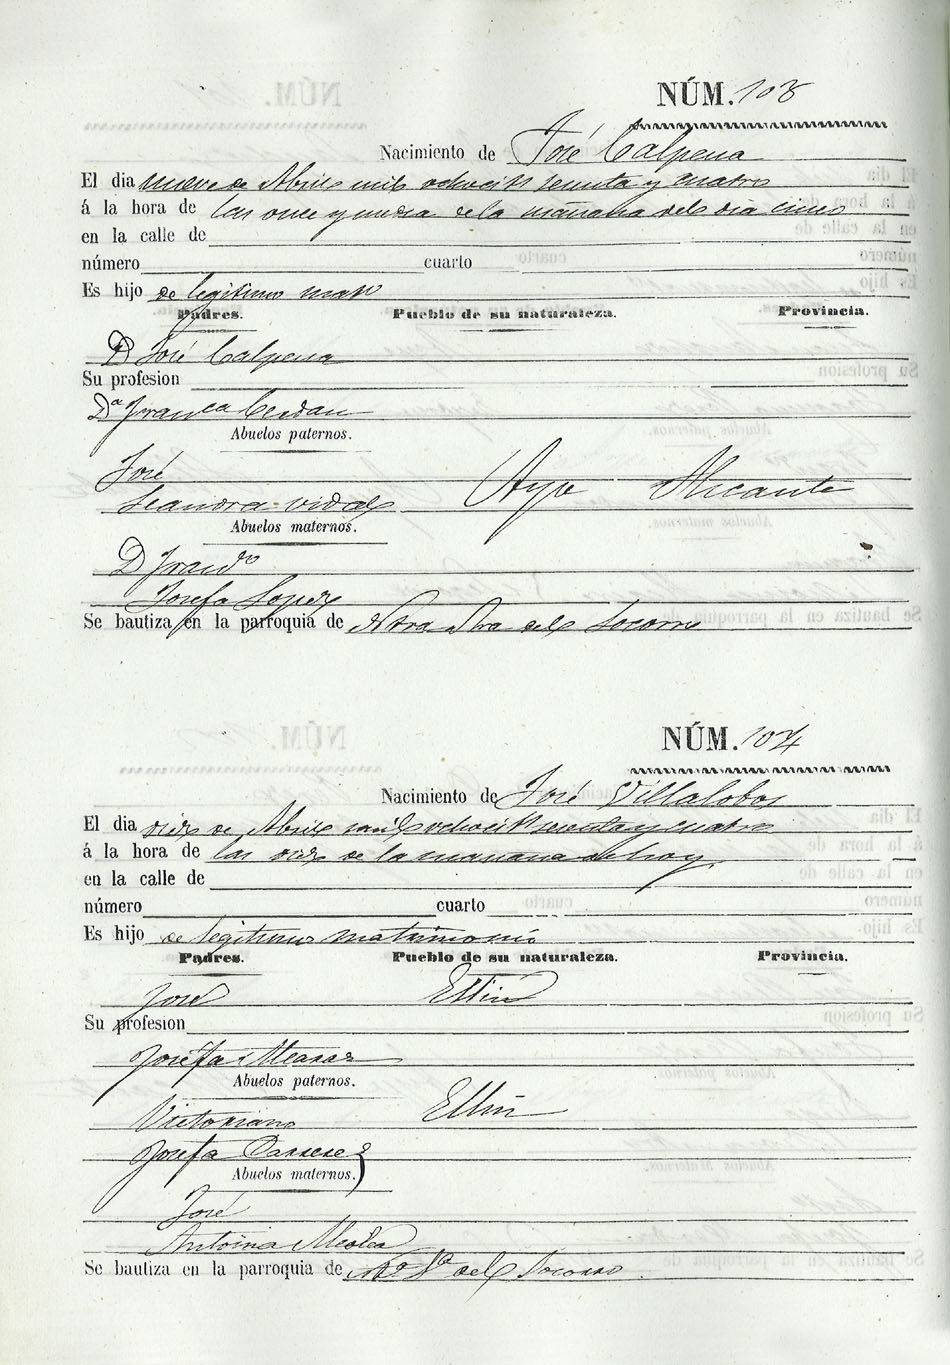 NÚM. 103
Nacimiento de José Calpena
El dia nueve de Abril mil ochocits setenta y cuatro
á la hora de las once y media de la mañana del dia cinco
en la calle de
número cuarto
Es hijo de legitimo mato
Padres. Pueblo de su naturaleza. Provincia.
D José Calpena
Su profesion
Da Franca Cerdan
Abuelos paternos.
José
Leandra Vidal Aspe Alicante
Abuelos maternos.
D Frando
Josefa Lopez
Se bautiza en la parroquia de Ntra Sra del Socorro
NÚM. 104
Nacimiento de José Villalobos
El dia diez de Abril mil ochocits setenta y cuatro
á la hora de las diez de la mañana de hoy
en la calle de
número cuarto
Es hijo de legitimo matrimonio
Padres. Pueblo de su naturaleza. Provincia.
José Ellin
Su profesion
Josefa Alcaraz
Abuelos paternos.
Victoriano Ellin
Josefa
Abuelos maternos.
José
Antonia
Se bautiza en la parroquia de Na Sa del Socorro